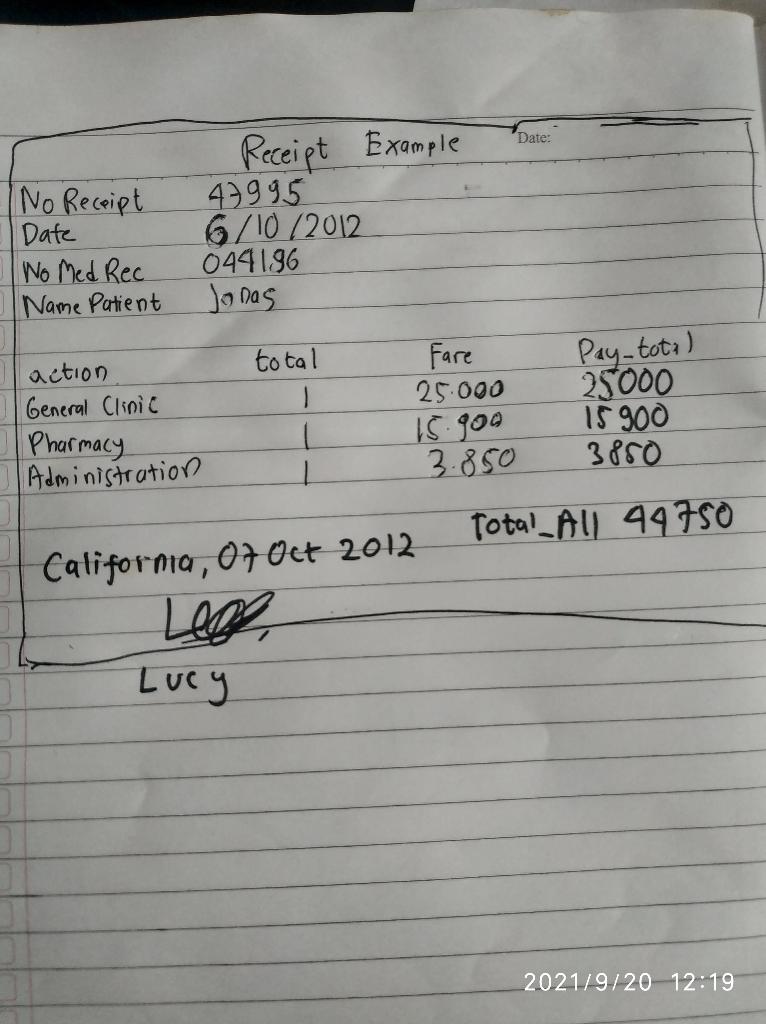 Receipt Example
Date:
No Receipt 47995
Date 6/10/2012
No Med Rec 044196
Name Patient Jonas
action total Fare Pay_total
General Clinic 1 25.000 25000
Pharmacy 1 15.900 15900
Administration 1 3.850 3850
Total_All 44750
California, 07 Oct 2012
Lucy
2021/9/20 12:19